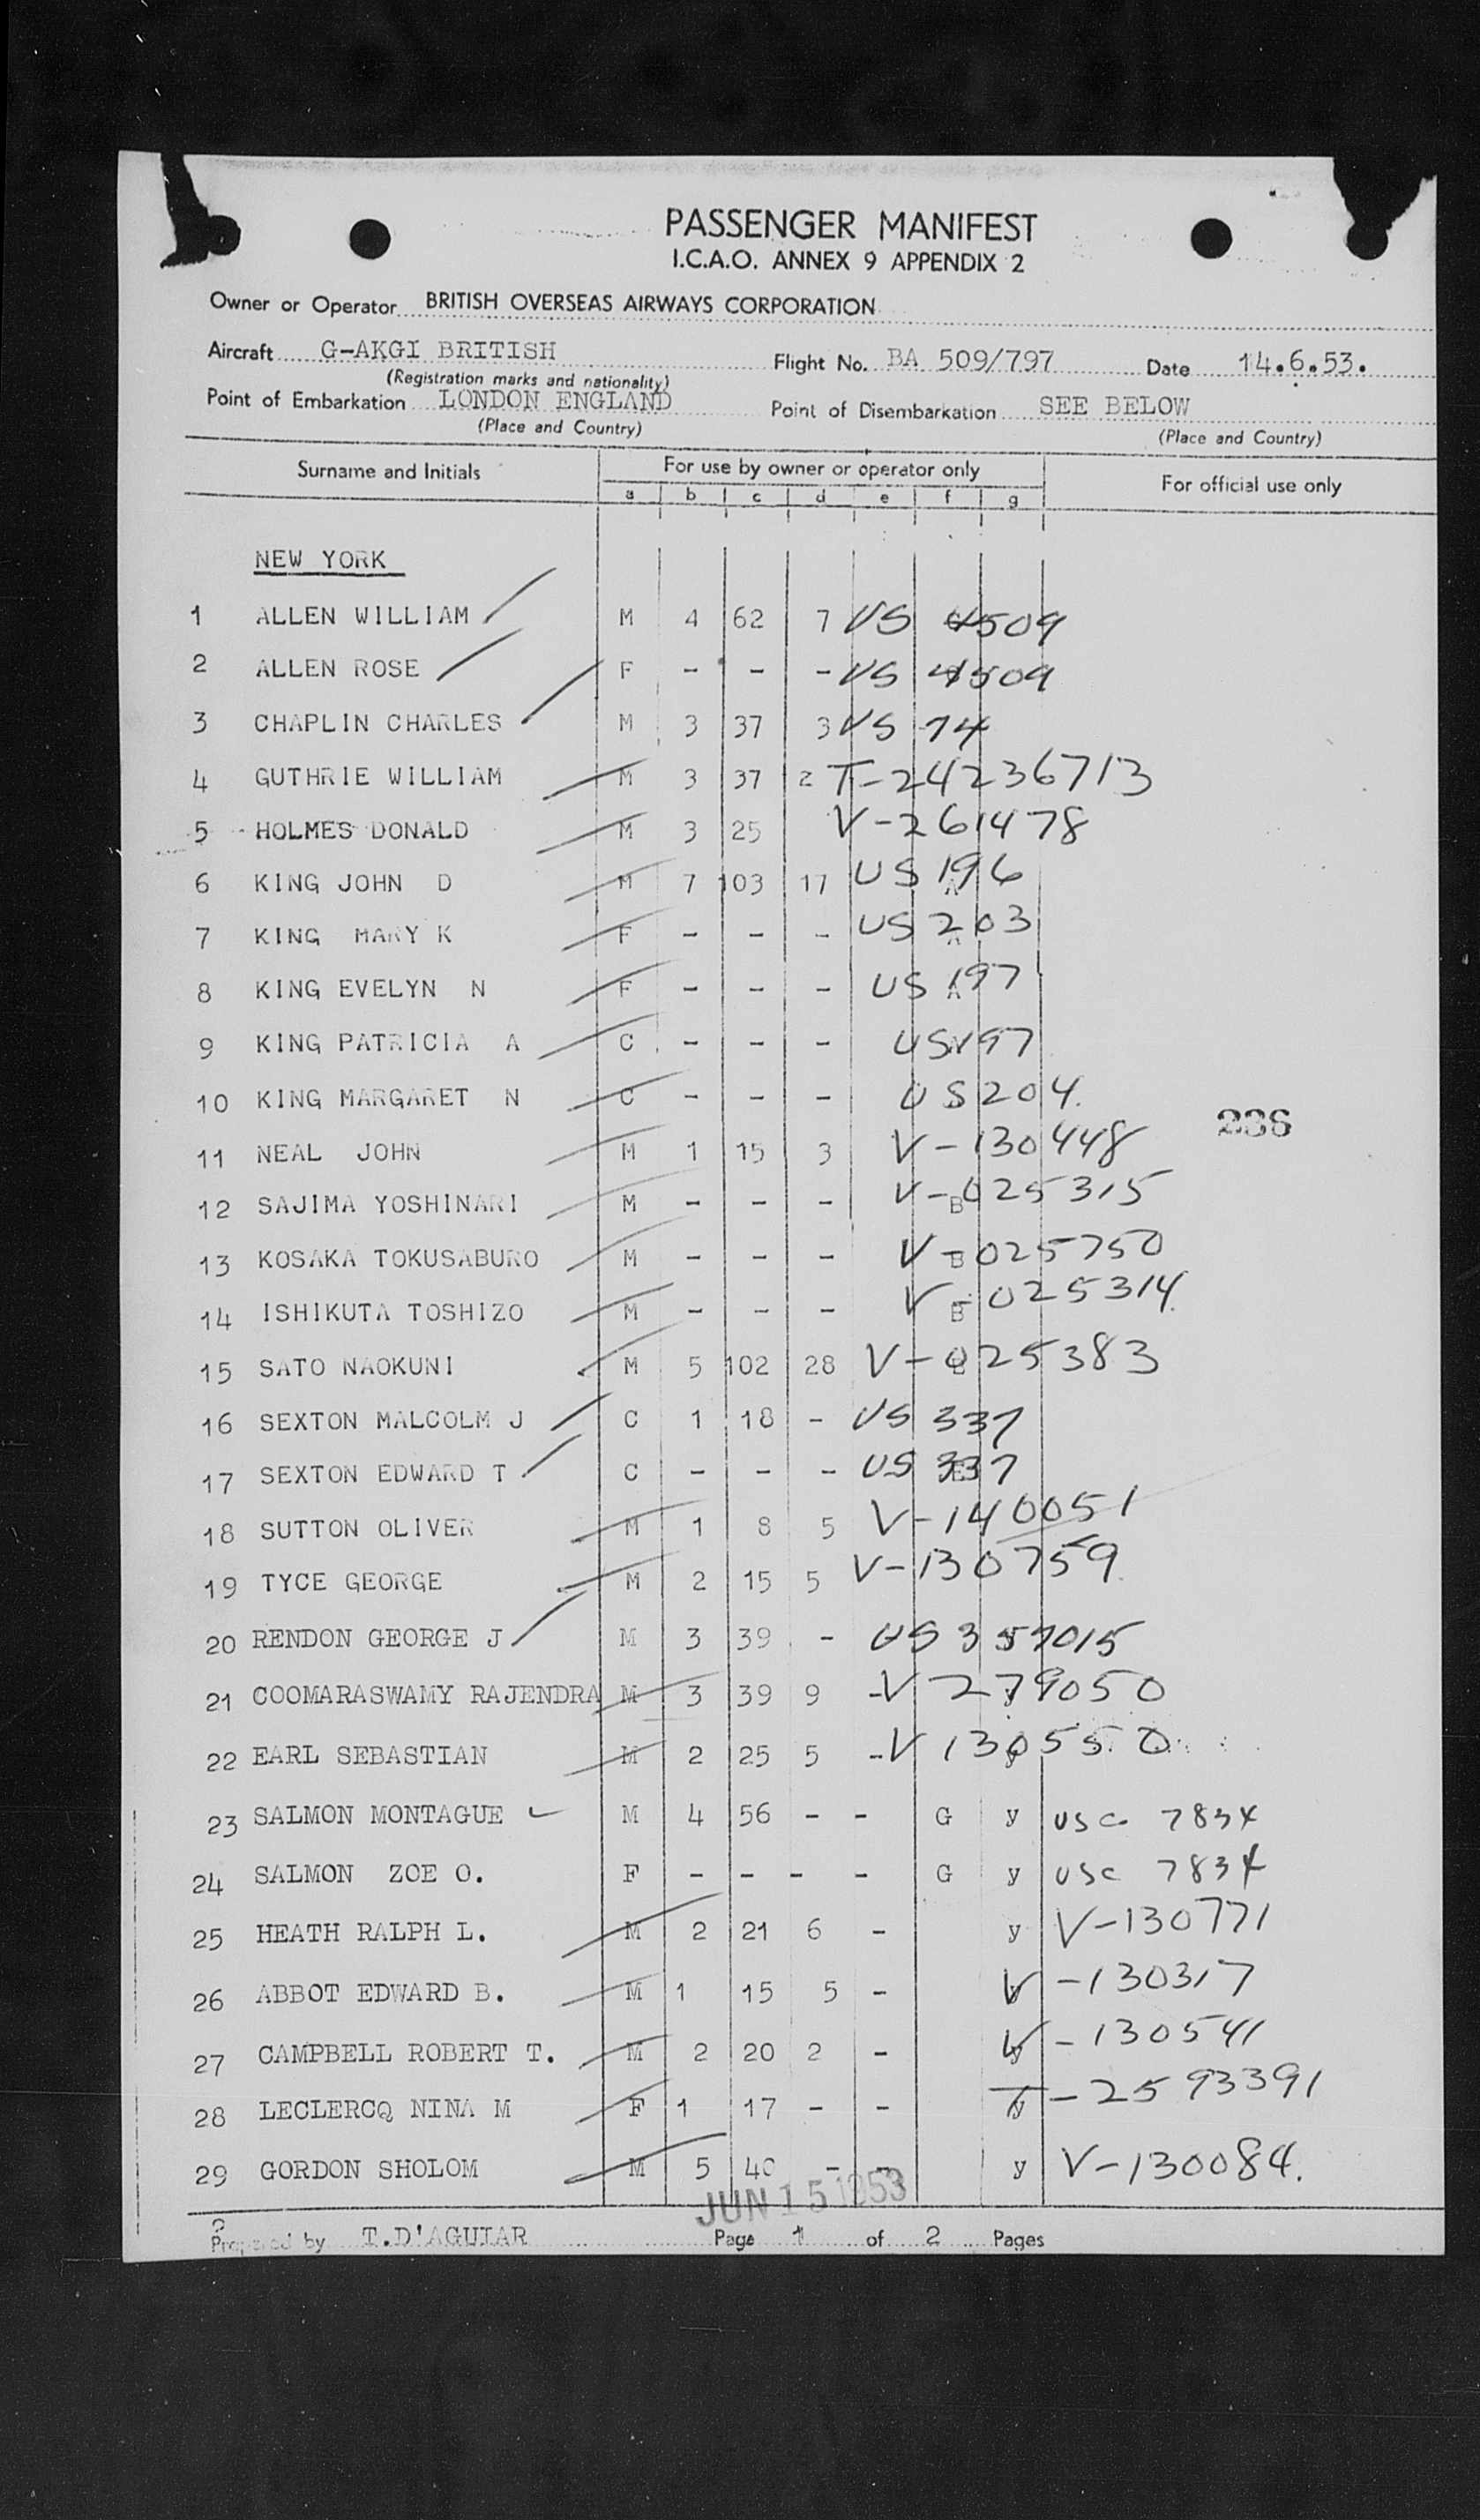 PASSENGER MANIFEST
I.C.A.O. ANNEX 9 APPENDIX 2
Owner or Operator BRITISH OVERSEAS AIRWAYS CORPORATION
Aircraft G-AKGI BRITISH Flight No. BA 509/797 Date 14.6.53.
(Registration marks and nationality)
Point of Embarkation LONDON ENGLAND Point of Disembarkation SEE BELOW
(Place and Country) (Place and Country)
Surname and Initials For use by owner or operator only For official use only
a b c d e f g
NEW YORK
1 ALLEN WILLIAM M 4 62 7 US 4509
2 ALLEN ROSE F - - - US 4509
3 CHAPLIN CHARLES M 3 37 3 US 74
4 GUTHRIE WILLIAM M 3 37 2 T-24236713
5 HOLMES DONALD M 3 25 V-261478
6 KING JOHN D M 7 103 17 US 196
7 KING MARY K F - - - US 203
8 KING EVELYN N F - - - US 197
9 KING PATRICIA A C - - - US 197
10 KING MARGARET N C - - - US 204.
236
11 NEAL JOHN M 1 15 3 V-130448
12 SAJIMA YOSHINARI M - - - V-B025315
13 KOSAKA TOKUSABURO M - - - V-B025750
14 ISHIKUTA TOSHIZO M - - - V-B025314.
15 SATO NAOKUNI M 5 102 28 V-025383
16 SEXTON MALCOLM J C 1 18 - US 337
17 SEXTON EDWARD T C - - - US 337
18 SUTTON OLIVER M 1 8 5 V-140051
19 TYCE GEORGE M 2 15 5 V-130759
20 RENDON GEORGE J M 3 39 - US 357015
21 COOMARASWAMY RAJENDRA M 3 39 9 - V 279050
22 EARL SEBASTIAN M 2 25 5 - V 130550
23 SALMON MONTAGUE M 4 56 - - G y USC 7834
24 SALMON ZOE O. F - - - - G y USC 7834
25 HEATH RALPH L. M 2 21 6 - y V-130771
26 ABBOT EDWARD B. M 1 15 5 - V-130317
27 CAMPBELL ROBERT T. M 2 20 2 - V-130541
28 LECLERCQ NINA M F 1 17 - - T-2593391
29 GORDON SHOLOM M 5 40 - - y V-130084.
JUN 15 1953
Prepared by T.D'AGUIAR Page 1 of 2 Pages